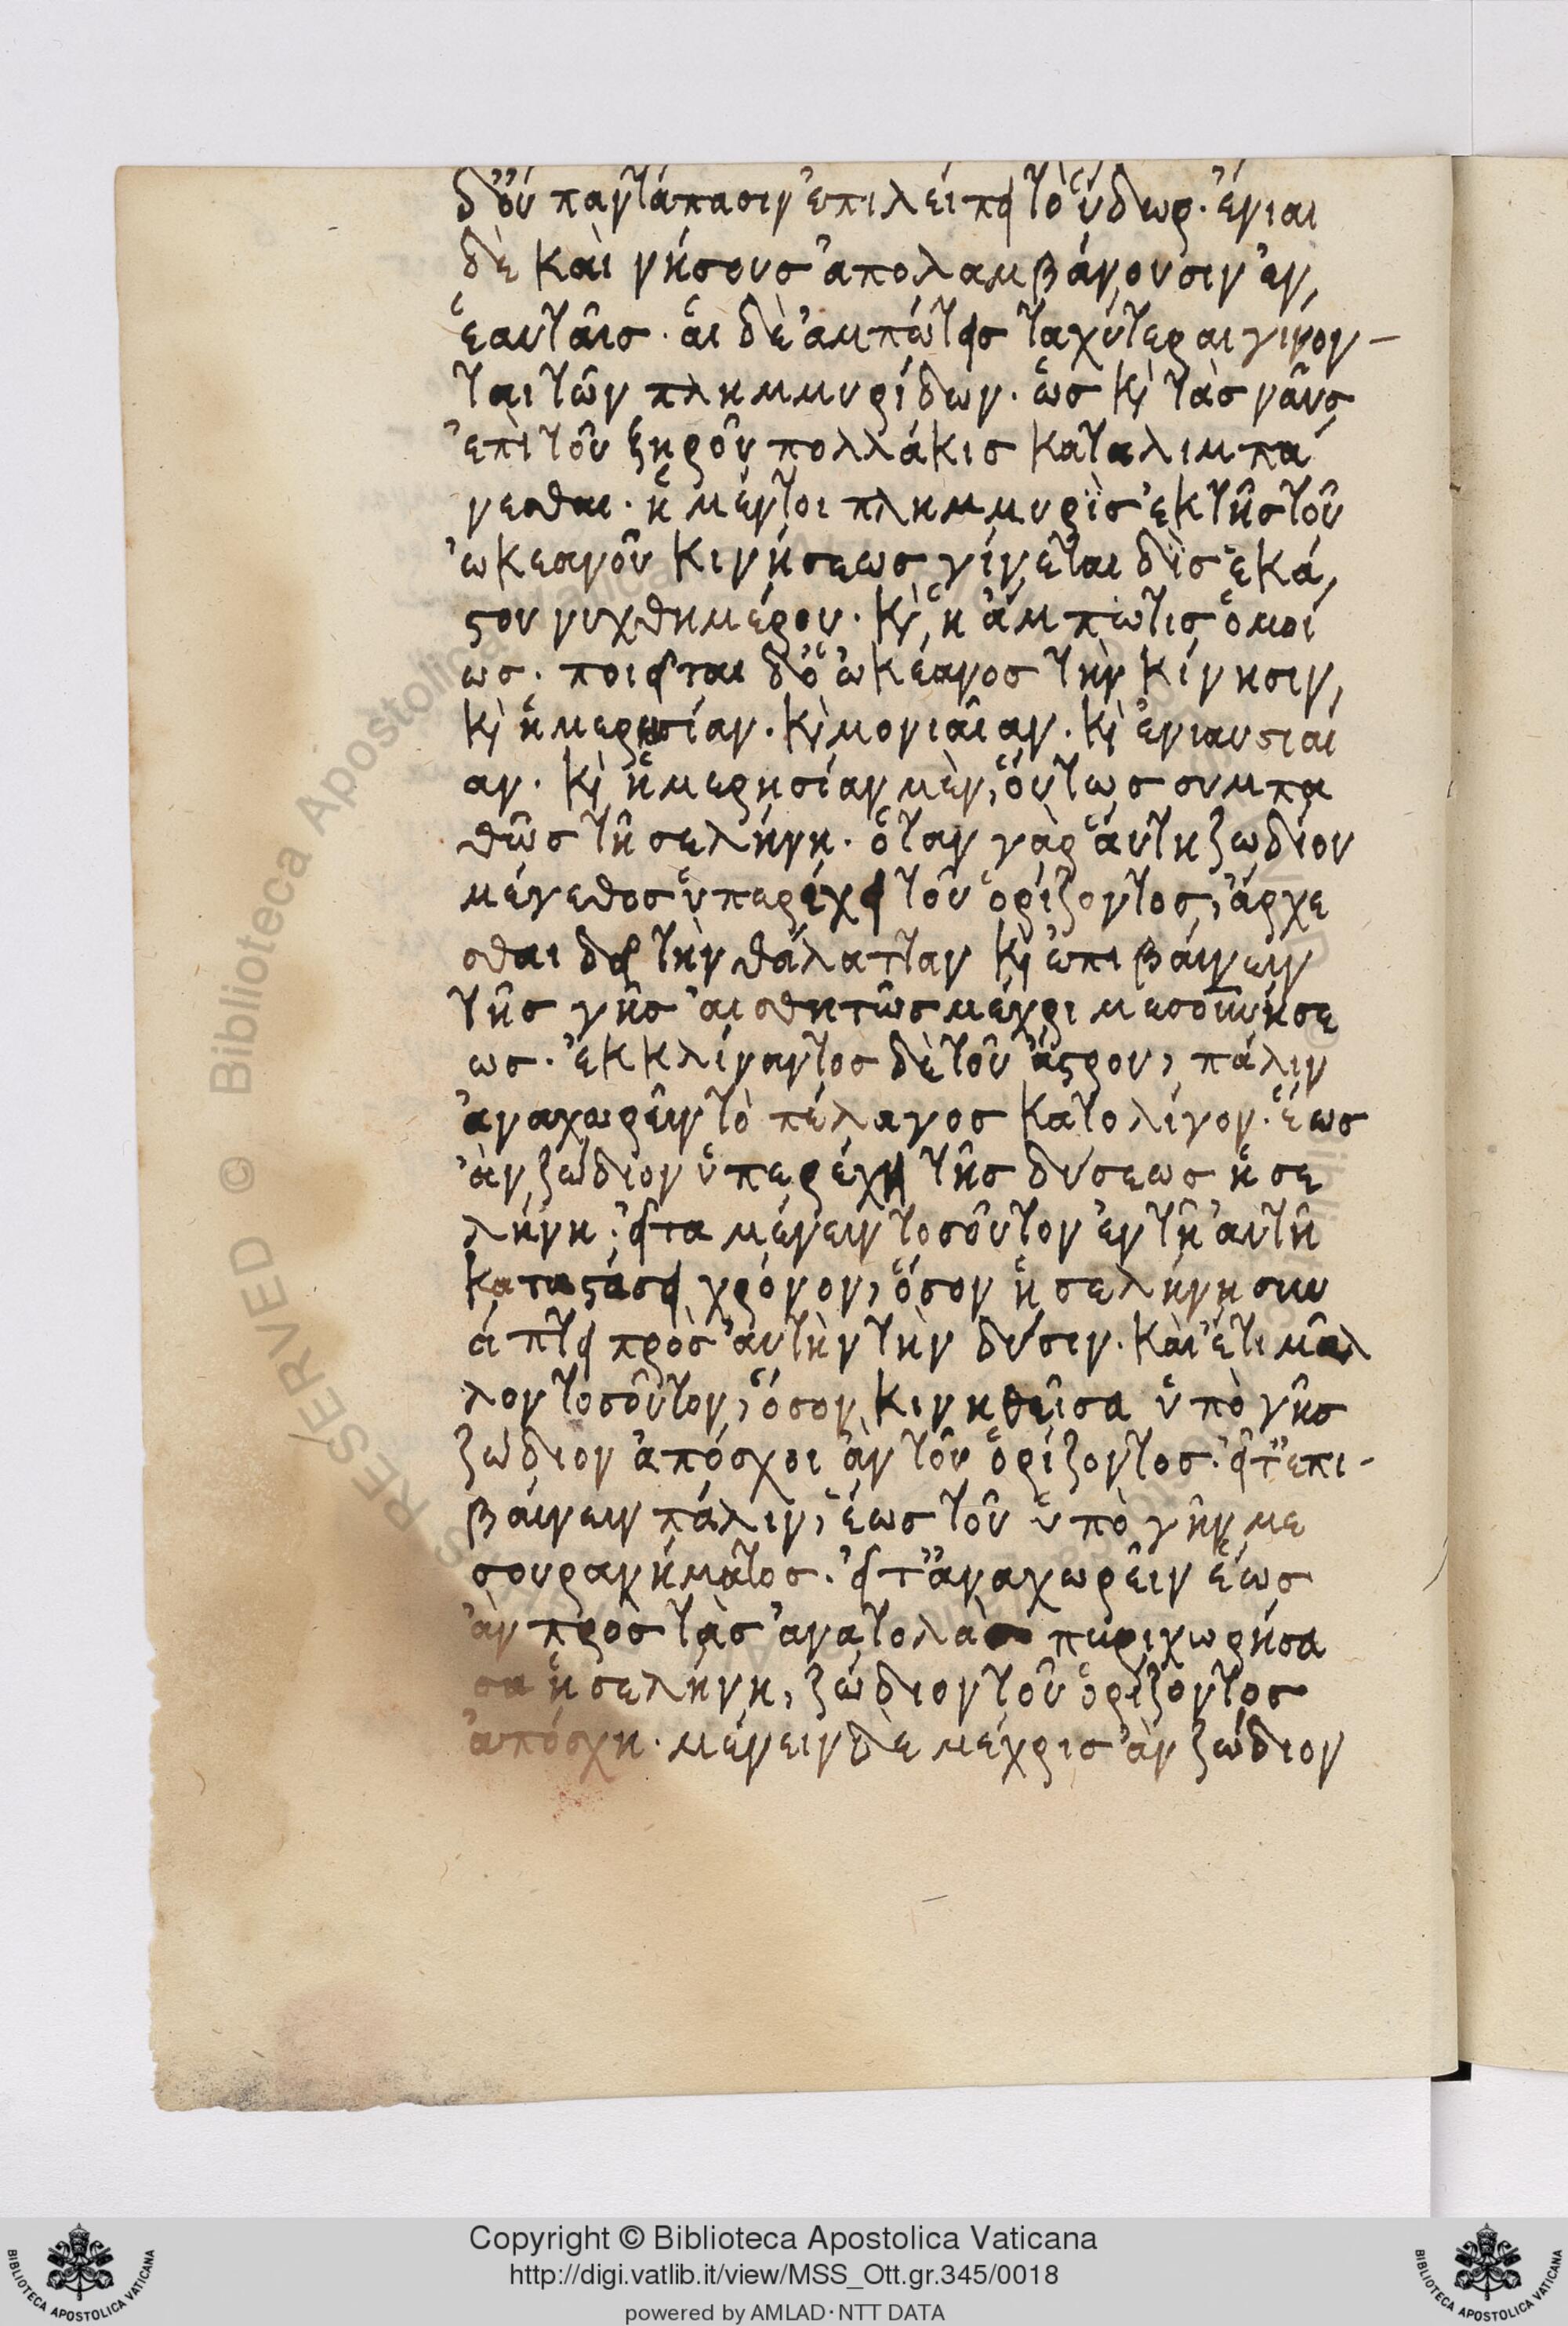 δ' οὐ παντάπασιν ἐπιλείπει τὸ ὕδωρ. ἔνιαι
δὲ καὶ νήσους ἀπολαμβάνουσιν ἐν
ἑαυταῖς. αἱ δὲ ἀμπώτεις ταχύτεραι γίνον-
ται τῶν πλημμυρίδων. ὡς κὶ τὰς ναῦς
ἐπὶ τοῦ ξηροῦ πολλάκις καταλιμπά
νεσθαι. ἡ μέντοι πλημμυρὶς ἐκ τῆς τοῦ
ὠκεανοῦ κινήσεως γίνεται δὶς ἑκά,
στου νυχθημέρου. κὶ ἡ ἄμπωτις ὁμοί
ως. ποιεῖται δ' ὁ ὠκέανος τὴν κίνησιν,
κὶ ἡμερησίαν. κὶ μονιαῖαν. κὶ ἐνιαυσιαί
αν. κὶ ἡμερησίαν μὲν, οὕτως συμπα
θῶς τῇ σελήνῃ. ὅταν γὰρ αὕτη ζωδίου
μέγεθος ὑπερέχει τοῦ ὁρίζοντος, ἄρχε
σθαι δεῖ τὴν θάλατταν κὶ ἐπιβαίνειν
τῆς γῆς αἰσθητῶς μέχρι μεσουνήσε
ως. ἐκκλίναντος δὲ τοῦ ἄστρου, πάλιν
ἀναχωρεῖν τὸ πέλαγος κατολίγον. ἕως
ἂν ζώδιον ὑπερέχῃ τῆς δύσεως ἡ σε
λήνη. εἶτα μένειν τοσοῦτον ἐν τῇ αὐτῇ
καταστάσει χρόνον, ὅσον ἡ σελήνη συν
άπτει πρὸς αὐτὴν τὴν δύσιν. καὶ ἔτι μᾶλ
λον τοσοῦτον, ὅσον κινηθεῖσα ὑπὸ γῆς
ζώδιον ἀπόσχοι ἂν τοῦ ὁρίζοντος. εἶτ' ἐπι-
βαίνειν πάλιν, ἕως τοῦ ὑπὸ γῆν με
σουρανήματος. εἶτ' ἀναχωρεῖν ἕως
ἂν πρὸς τὰς ἀνατολὰς περιχωρήσα
σα ἡ σελήνη, ζώδιον τοῦ ὁρίζοντος
ἀπόσχῃ. μένειν δὲ μέχρις ἂν ζώδιον
© Biblioteca Apostolica Vaticana
Copyright © Biblioteca Apostolica Vaticana
http://digi.vatlib.it/view/MSS_Ott.gr.345/0018
powered by AMLAD·NTT DATA
BIBLIOTECA APOSTOLICA VATICANA
BIBLIOTECA APOSTOLICA VATICANA